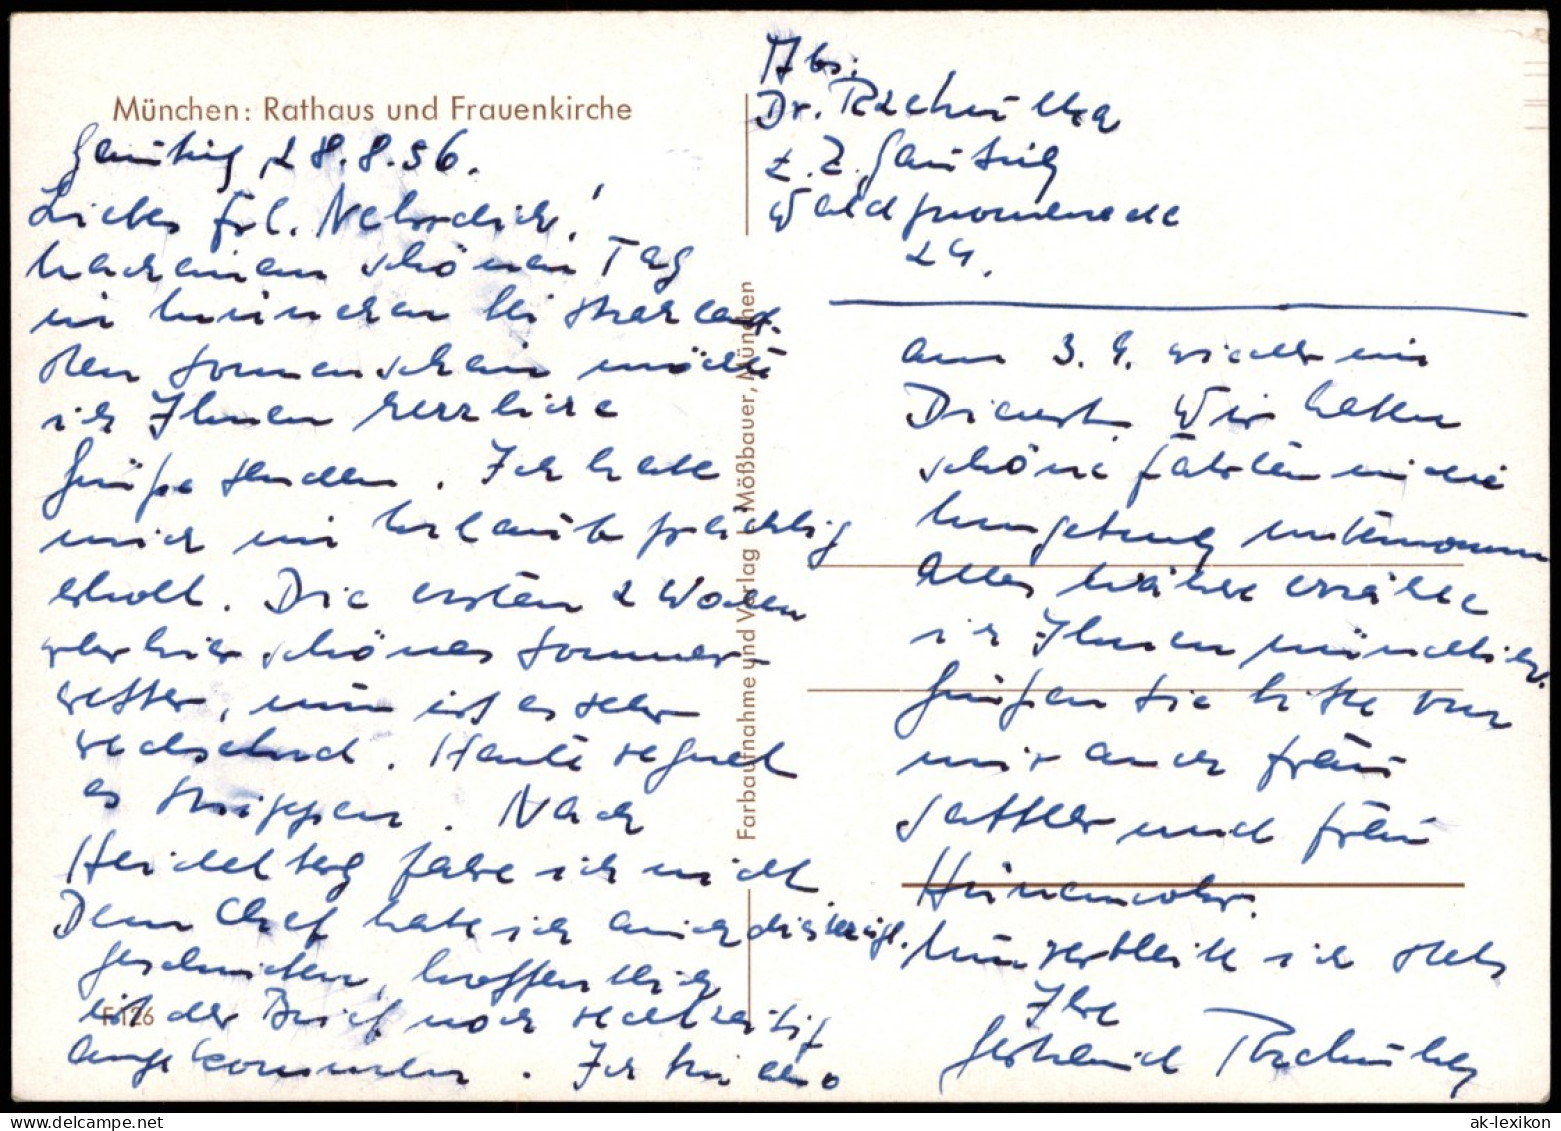 München: Rathaus und Frauenkirche
Gauting, 28.8.56.
Liebes Frl.
Nach einem schönen Tag
in München bei strahlen-
den Sonnenschein möchte
ich Ihnen herzliche
Grüße senden. Ich habe
mich im Urlaub prächtig
erholt. Die ersten 2 Wochen
war hier schönes Sommer-
wetter, nun ist es sehr
wechselnd. Heute regnet
es Strippen. Nach
Heidelberg fahre ich nicht
Dem Chef habe ich
geschrieben, hoffentlich
ist der Brief noch rechtzeitig
angekommen. Ich bin also
F 126
Farbaufnahme und Verlag L. Mößbauer, München
Abs:
Dr.
z. Z. Gauting
Waldpromenade
24.
am 3. 9. wieder im
Dienst. Wir haben
schöne Fahrten in die
Umgebung unternommen
Alles nähere erzähle
ich Ihnen mündlich.
Grüßen Sie bitte von
mir auch Frau
Sattler und Frau
Nun verbleibe ich stets
Ihre
ak-lexikon